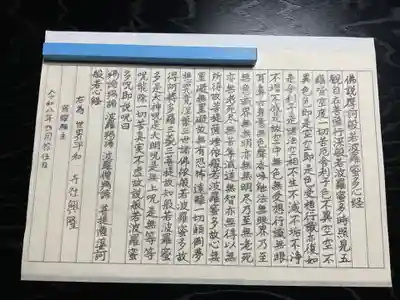 佛説摩訶般若波羅蜜多心経
観自在菩薩行深般若波羅蜜多時照見五
蘊皆空度一切苦厄舎利子色不異空空不
異色色即是空空即是色受想行識亦復如
是舎利子是諸法空相不生不滅不垢不浄
不増不減是故空中無色無受想行識無眼
耳鼻舌身意無色声香味触法無眼界乃至
無意識界無無明亦無無明尽乃至無老死
亦無老死尽無苦集滅道無智亦無得以無
所得故菩提薩埵依般若波羅蜜多故心無
罣礙無罣礙故無有恐怖遠離一切顛倒夢
想究竟涅槃三世諸佛依般若波羅蜜多故
得阿耨多羅三藐三菩提故知般若波羅蜜
多是大神呪是大明呪是無上呪是無等等
呪能除一切苦真実不虚故説般若波羅蜜
多呪即説呪曰
羯諦羯諦 波羅羯諦 波羅僧羯諦 菩提薩婆訶
般若心経
右為 世界平和 寺社興隆
願主
令和八年四月拾伍日